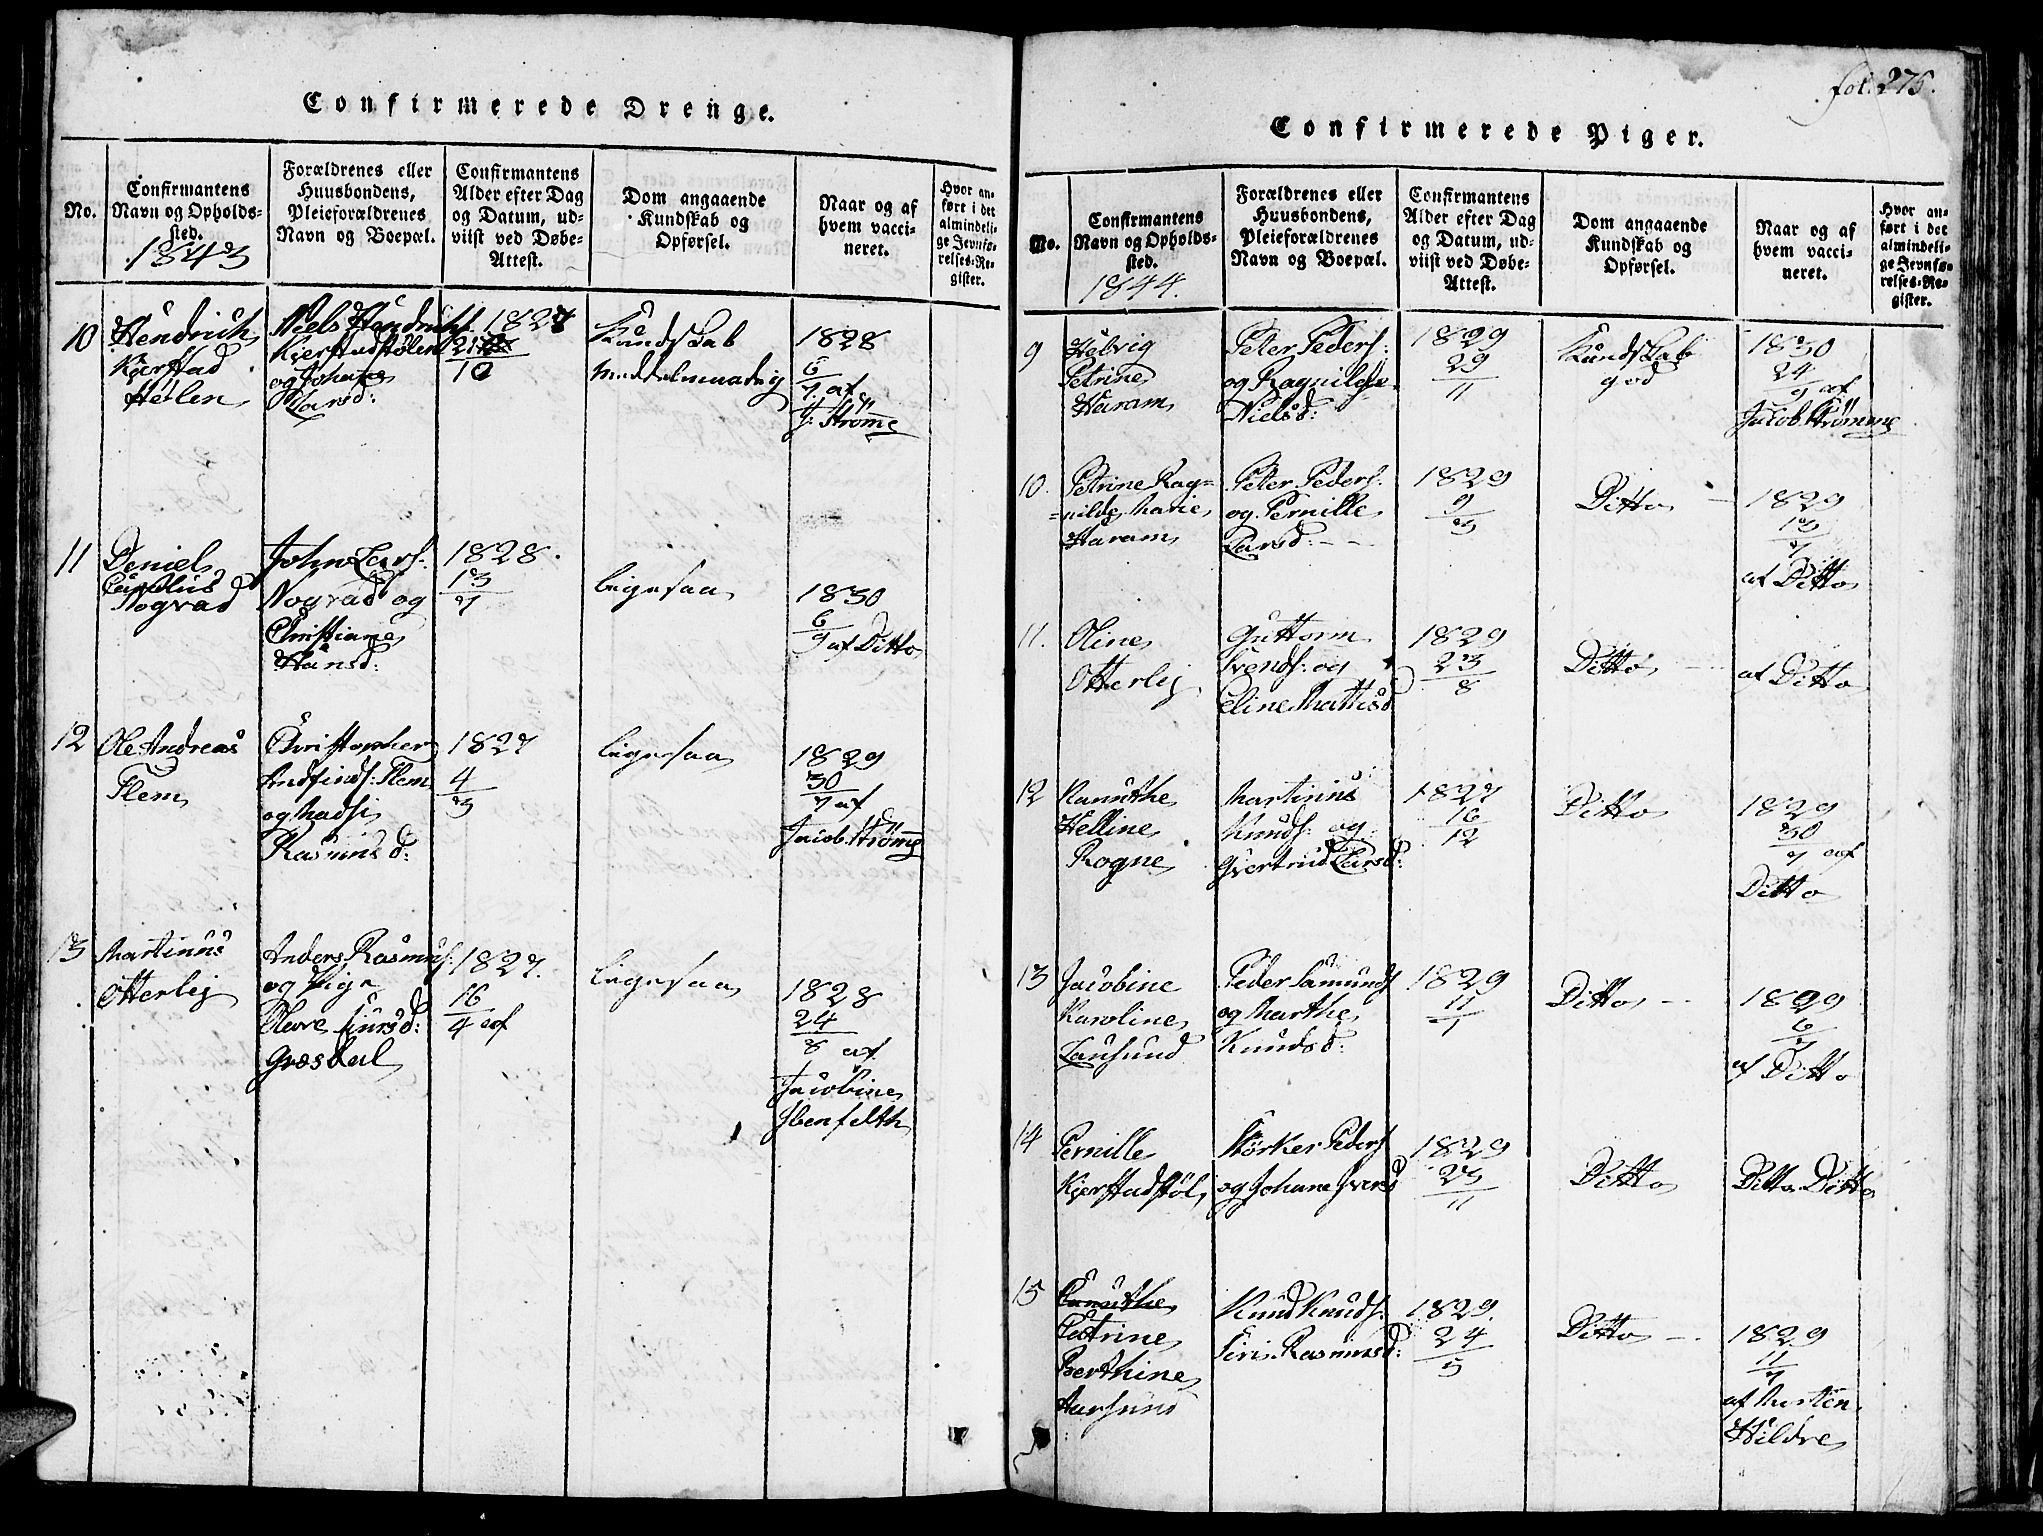 Confirmerede Drenge.
No.
Confirmantens
Navn og Opholds-
sted.
1843
Forældrenes eller
Huusbondens,
Pleieforældrenes
Navn og Boepæl.
Confirmantens
Alder efter Dag
og Datum, ud-
viist ved Døbe-
Attest.
Dom angaaende
Kundskab og
Opførsel.
Naar og af
hvem vacci-
neret.
Hvor an-
ført i det
almindeli-
ge Jevnfø-
relses-Re-
gister.
10
Hendrich
Kjerstad
Hølen
Niels Hendrichs.
Kjerstadhølen
og Johane
Larsd:
1827
10
Kundskab
middelmaadig
1828
6
7 af
J: Strømme
11
Deniel
Nogvad
John Lars:
Nogvad og
Christiane
Hansd:
1828.
13
7
ligesaa
1830
6
9 af Ditto
12
Ole Andreas
Flem
Christopher
Andfinds: Flem
og Madsi
Rasmusd:
1827
4
3
ligesaa
1829
30
7 af
Jacob Strømme
13
Martinus
Otterlej
Anders Rasmus:
og Pige
Olave Siursd:
Græskal
1827.
16
4 af
ligesaa
1828
24
8 af
Jacobine
Ibenfelth
fol: 275.
Confirmerede Piger.
No.
Confirmantens
Navn og Opholds-
sted.
1844.
Forældrenes eller
Huusbondens,
Pleieforældrenes
Navn og Boepæl.
Confirmantens
Alder efter Dag
og Datum, ud-
viist ved Døbe-
Attest.
Dom angaaende
Kundskab og
Opførsel.
Naar og af
hvem vacci-
neret.
Hvor an-
ført i det
almindeli-
ge Jevnfø-
relses-Re-
gister.
9
Helvig
Petrine
Haram
Peter Peders:
og Ragnilde
Nielsd:
1829
29
11
Kundskab
god
1830
24
9 af
Jacob Strømme
10.
Petrine Rag=
=nilde Marie
Haram
Peter Peders:
og Pernille
Larsd:
1829
9
3
Ditto
1829
13
7
af Ditto
11.
Oline
Otterlej
Guttorm
Svends: og
Eline Mattisd
1829
23
8
Ditto
af Ditto
12
Kanuthe
Helline
Rogne
Martinus
Knuds: og
Gjertrud Larsd:
1827
16
12
Ditto
1829
30
7 af
Ditto
13
Jacobine
Karoline
Lausund
Peder Samunds
og Marthe
Knudsd:
1829
11
1
Ditto
1829
6
7
af Ditto
14
Pernille
Kjerstadhøl
Størker Peders
og Johane Iversd
1829
23
11
Ditto
Ditto Ditto
15
Petrine
Berthine
Aursund
Knud Knuds:
Siri Rasmusd:
1829.
24
5
Ditto
1829
11
7
af Marten
Hildre